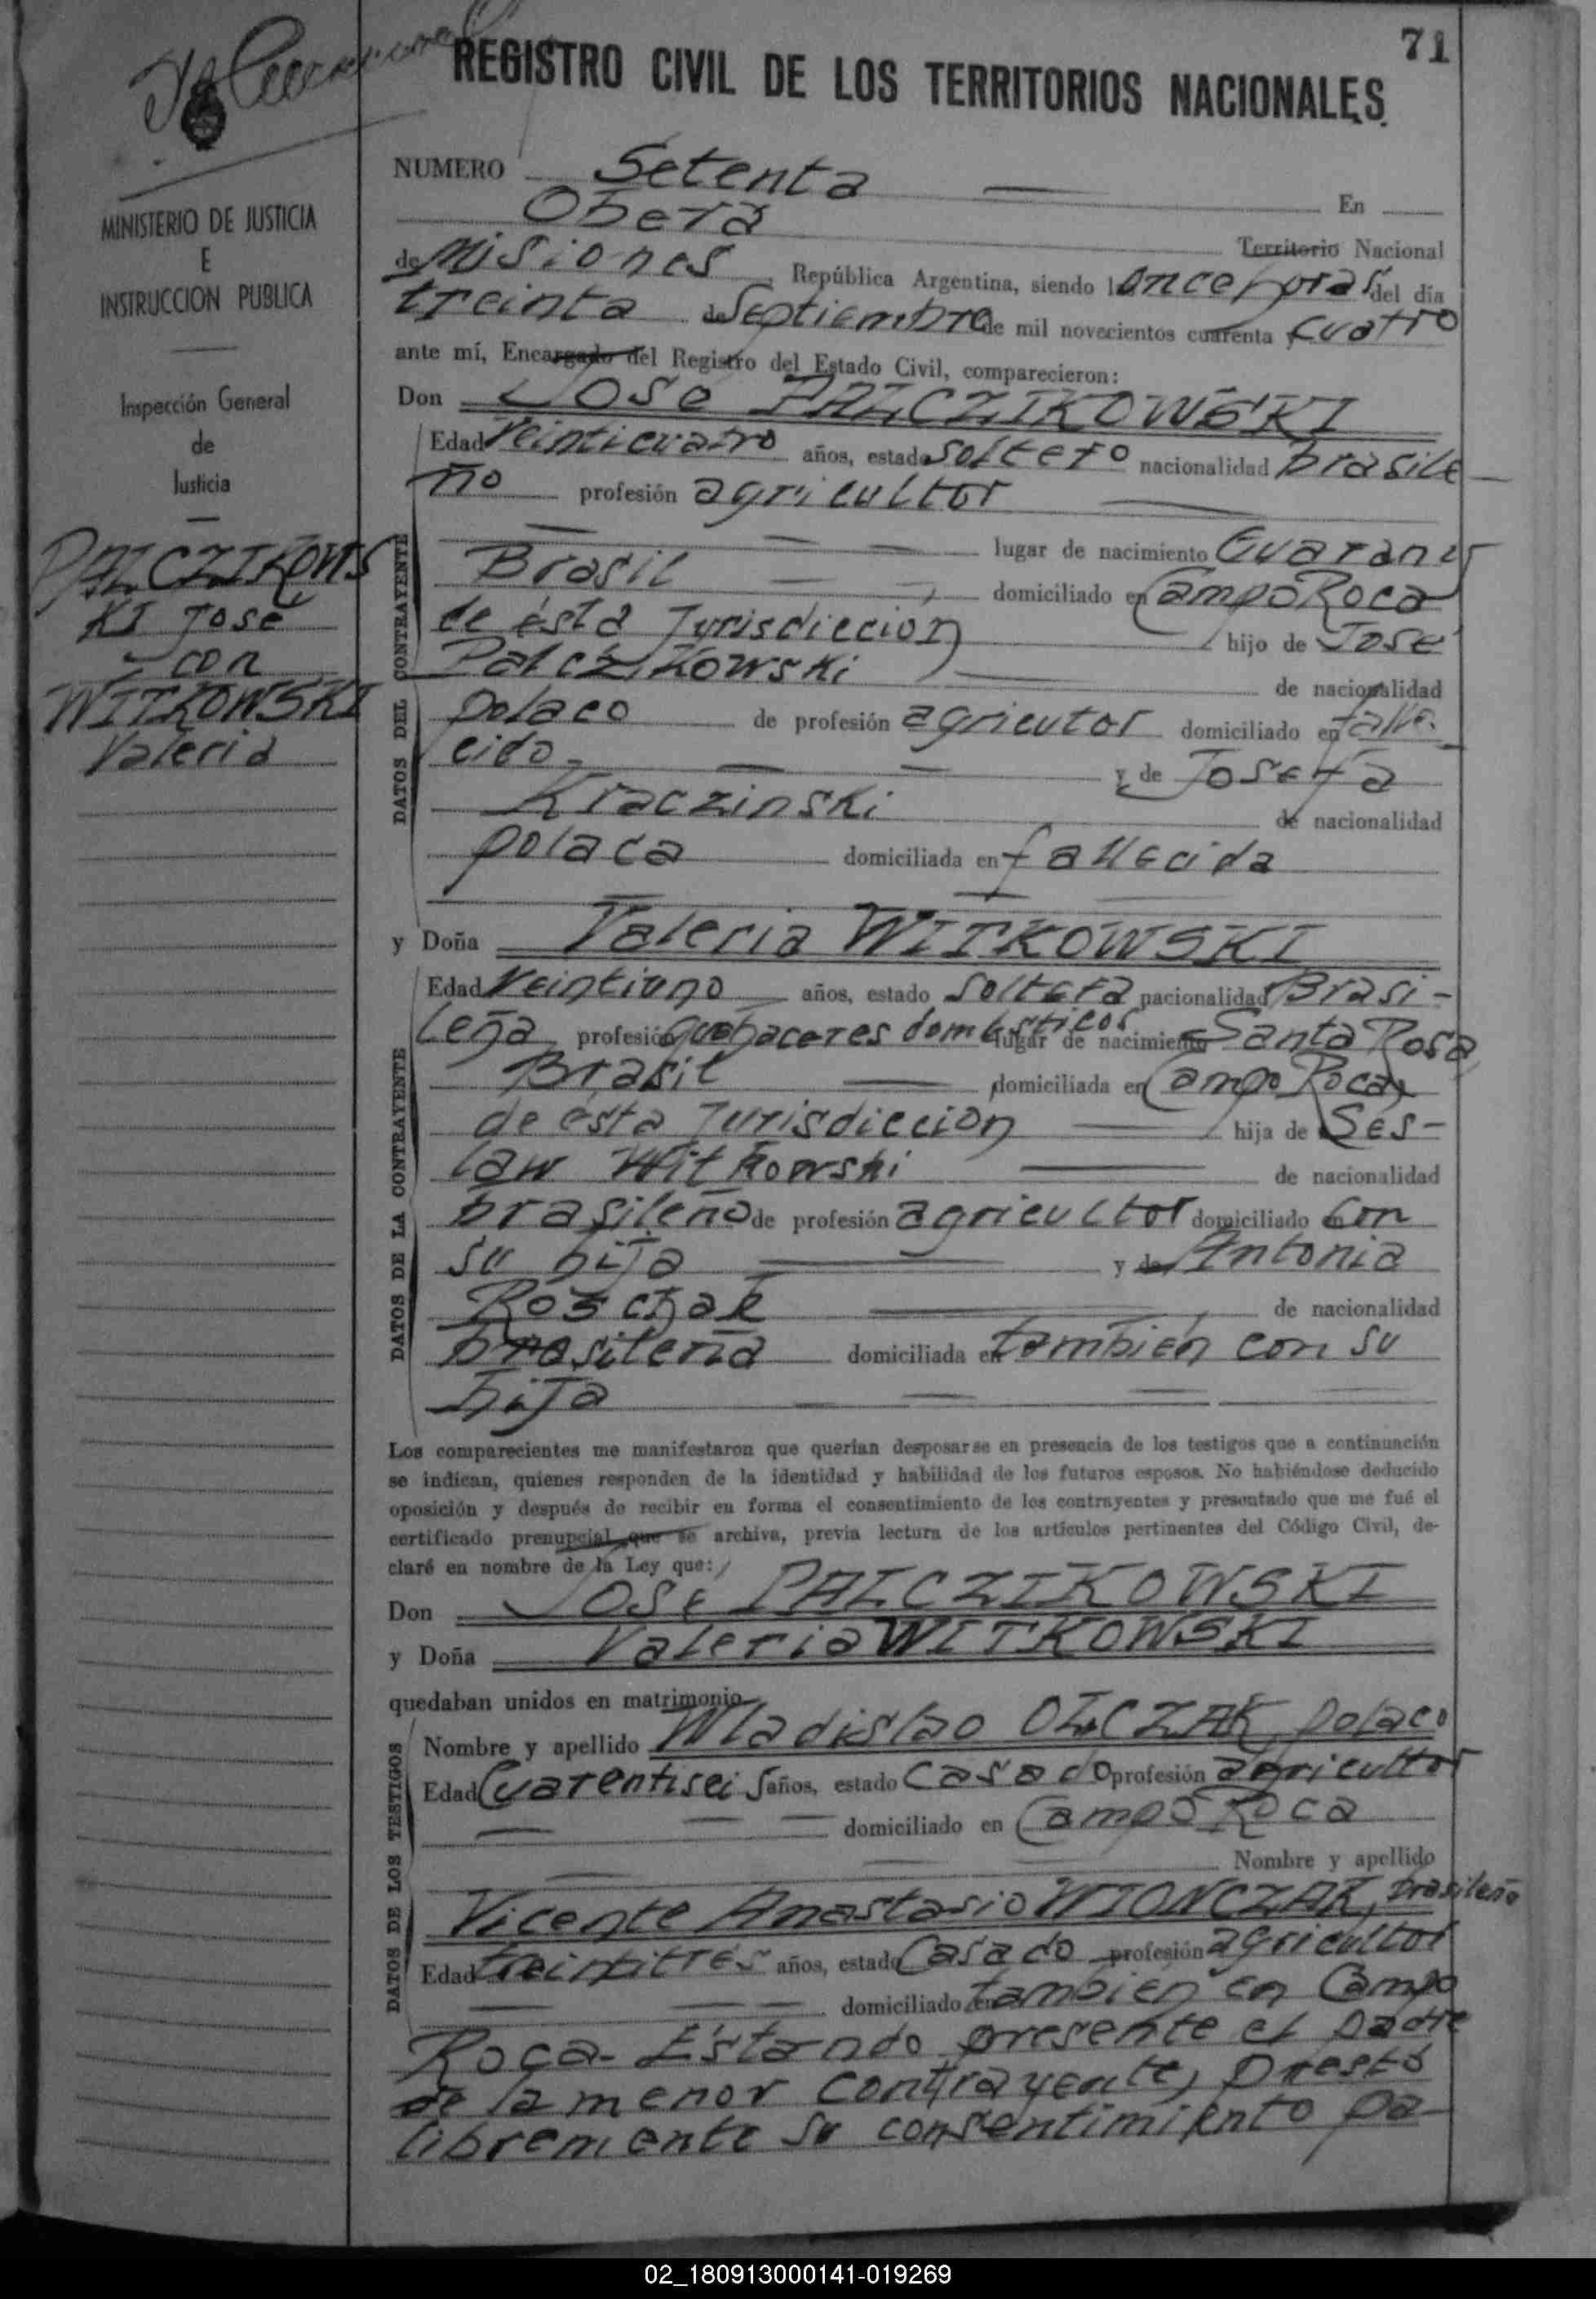 71
REGISTRO CIVIL DE LOS TERRITORIOS NACIONALES
MINISTERIO DE JUSTICIA
E
INSTRUCCION PUBLICA
Inspección General
de
Justicia
PALCZIKOWS
KI José
con
WITKOWSKI
Valeria
NUMERO Setenta En
Oberá Territorio Nacional
de Misiones, República Argentina, siendo las once horas del día
treinta de Septiembre de mil novecientos cuarenta cuatro
ante mí, Encargado del Registro del Estado Civil, comparecieron:
Don José PALCZIKOWSKI
Edad Veinticuatro años, estado soltero nacionalidad brasile
ño profesión agricultor
lugar de nacimiento Guaranis
Brasil domiciliado en Campo Roca
de ésta Jurisdiccion hijo de José
Palczikowski de nacionalidad
polaco de profesión agricutor domiciliado en falle
cido y de Josefa
Kraczinski de nacionalidad
polaca domiciliada en fallecida
DATOS DEL CONTRAYENTE
y Doña Valeria WITKOWSKI
Edad Veintiuno años, estado soltera nacionalidad Brasi-
leña profesión quehaceres domésticos lugar de nacimiento Santa Rosa
Brasil domiciliada en Campo Roca
de ésta Jurisdiccion hija de Ses-
law Witkowski de nacionalidad
brasileño de profesión agricultor domiciliado con
su hija y de Antonia
Roschak de nacionalidad
brasileña domiciliada en también con su
hija
DATOS DE LA CONTRAYENTE
Los comparecientes me manifestaron que querían desposarse en presencia de los testigos que a continuación
se indican, quienes responden de la identidad y habilidad de los futuros esposos. No habiéndose deducido
oposición y después de recibir en forma el consentimiento de los contrayentes y presentado que me fué el
certificado prenupcial que se archiva, previa lectura de los artículos pertinentes del Código Civil, de-
claré en nombre de la Ley que:
Don José PALCZIKOWSKI
y Doña Valeria WITKOWSKI
quedaban unidos en matrimonio
Nombre y apellido Wladislao OLCZAK, polaco
Edad Cuarentiseis años, estado casado profesión agricultor
domiciliado en Campo Roca
Nombre y apellido
Vicente Anastasio WIONCZAK, brasileño
Edad treintitres años, estado Casado profesión agricultor
domiciliado en tambien en Campo
Roca- Estando presente el padre
de la menor contrayente, prestó
libremente su consentimiento pa-
DATOS DE LOS TESTIGOS
02_180913000141-019269